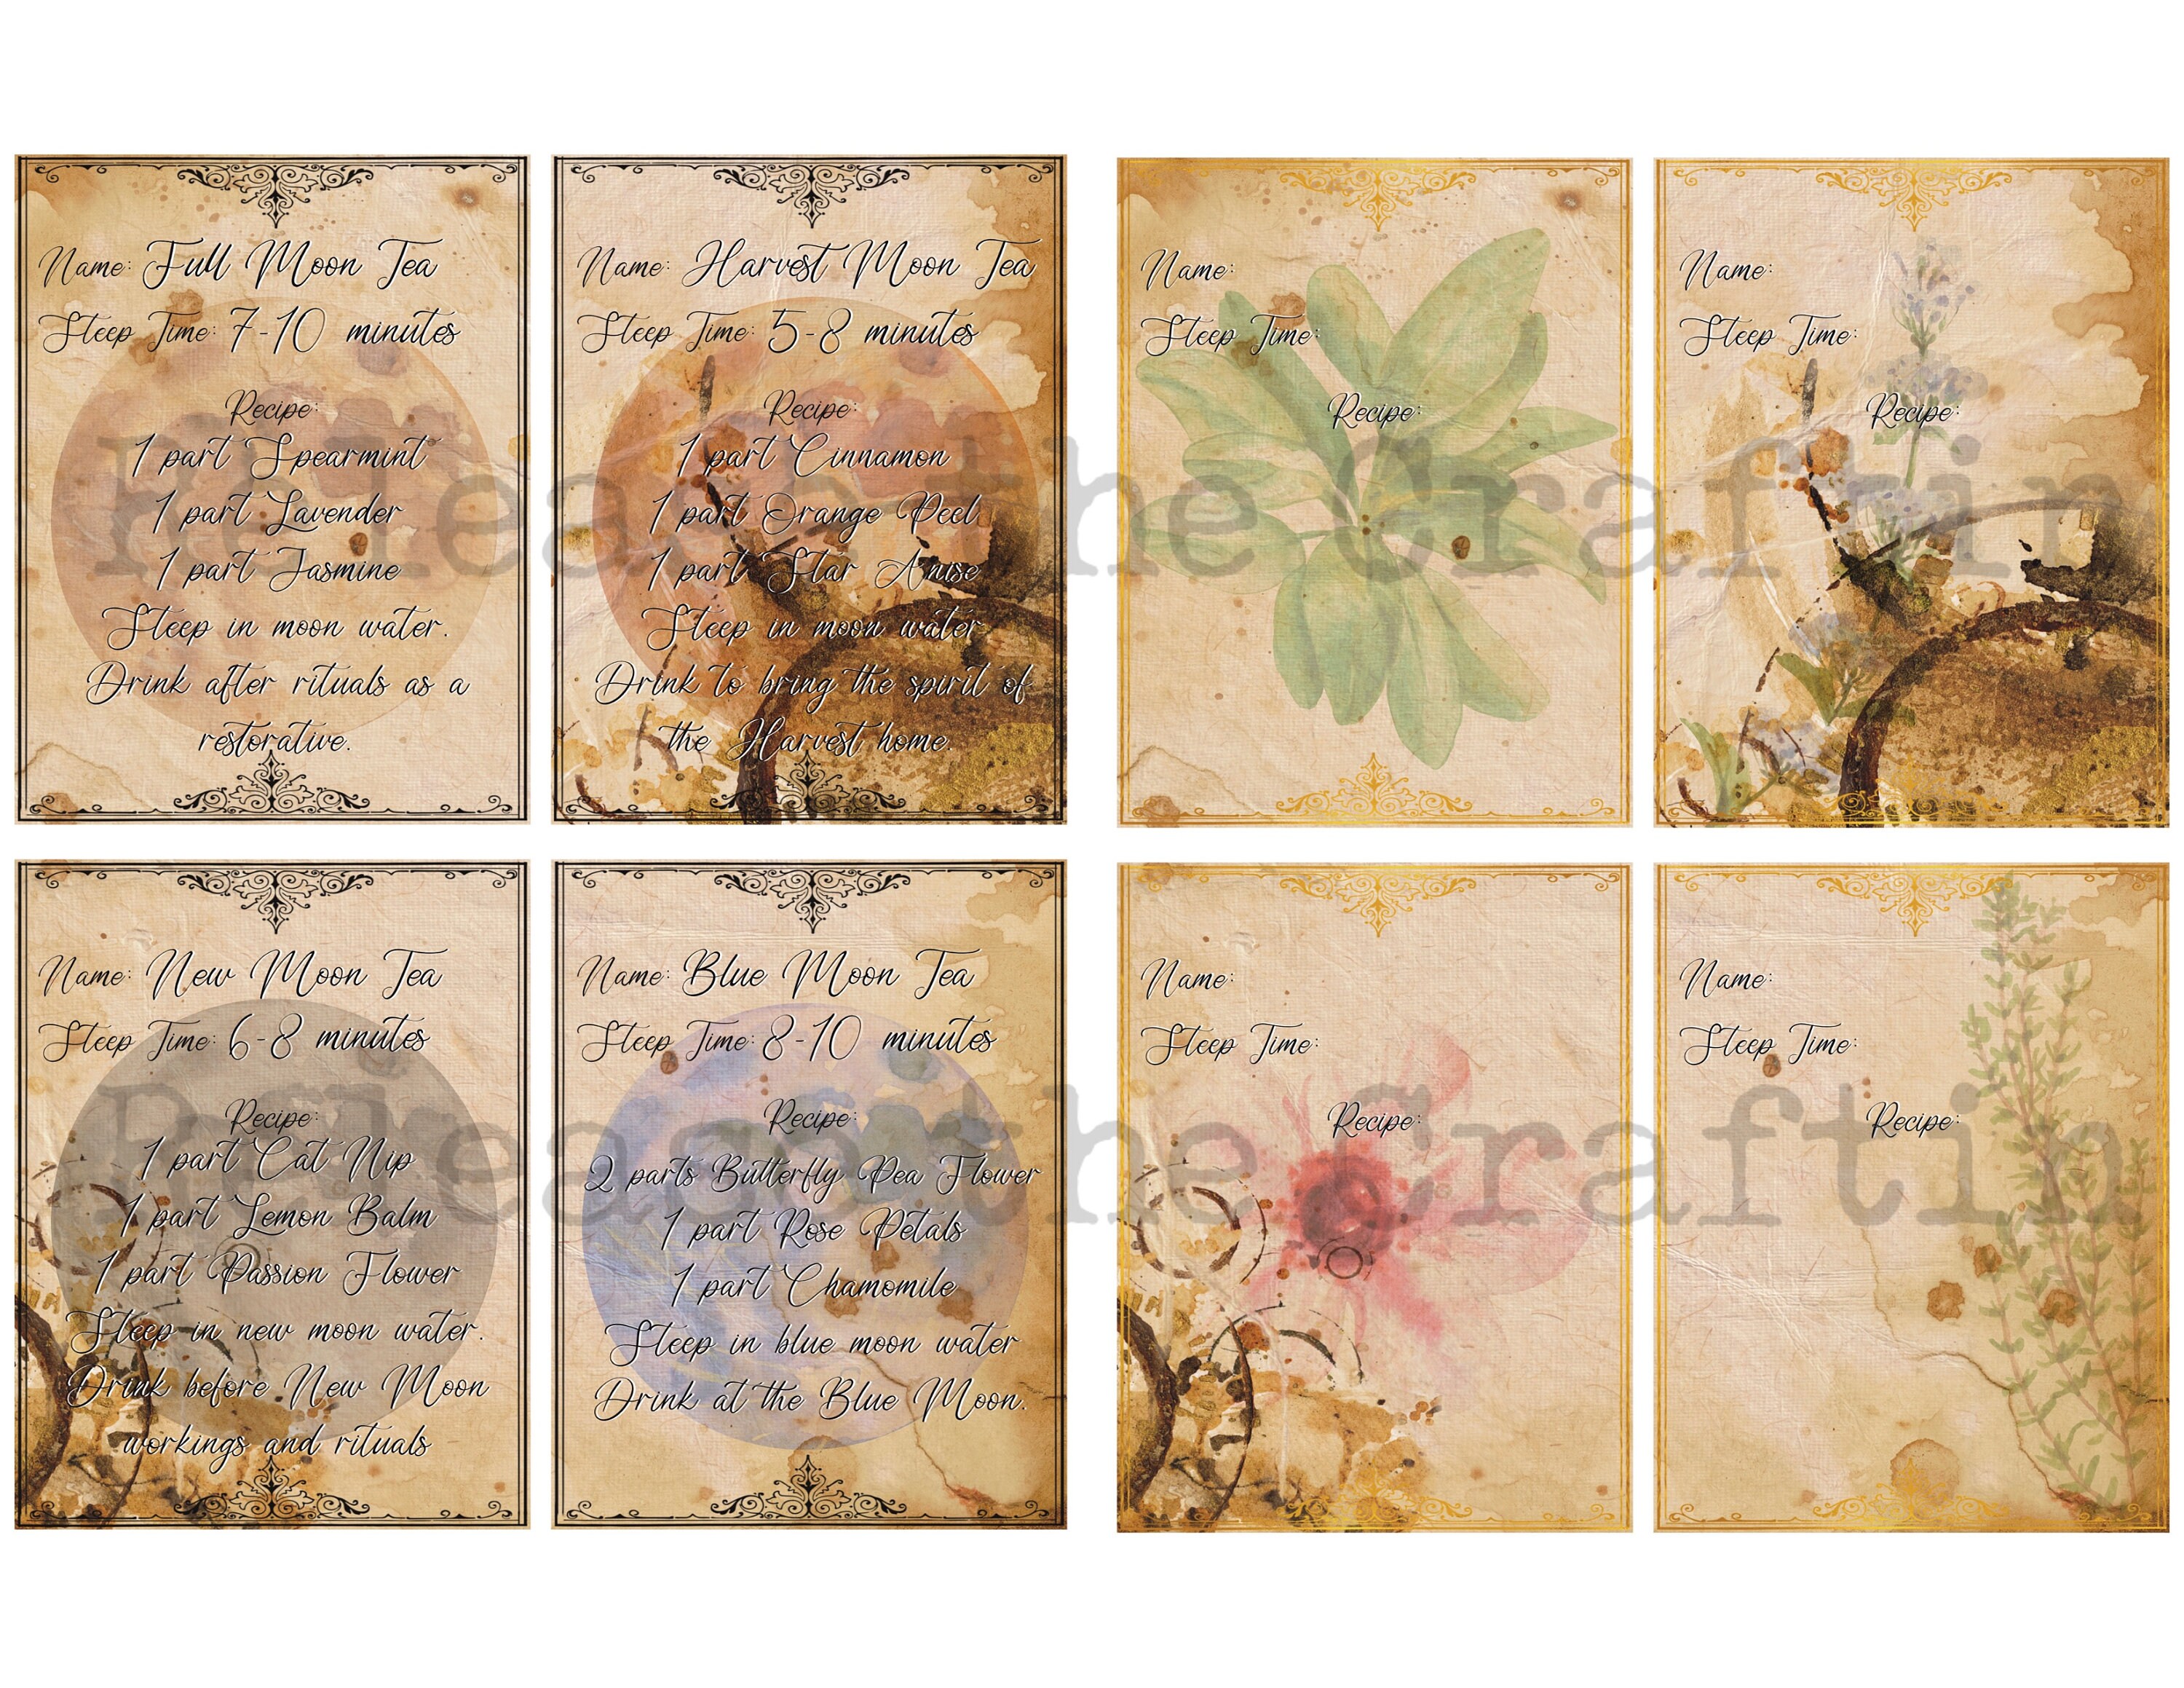 Name: Full Moon Tea
Steep Time: 7-10 minutes
Recipe:
1 part Spearmint
1 part Lavender
1 part Jasmine
Steep in moon water.
Drink after rituals as a
restorative.
Name: Harvest Moon Tea
Steep Time: 5-8 minutes
Recipe:
1 part Cinnamon
1 part Orange Peel
1 part Star Anise
Steep in moon water
Drink to bring the spirit of
the Harvest home.
Name:
Steep Time:
Recipe:
Name:
Steep Time:
Recipe:
Name: New Moon Tea
Steep Time: 6-8 minutes
Recipe:
1 part Cat Nip
1 part Lemon Balm
1 part Passion Flower
Steep in new moon water.
Drink before New Moon
workings and rituals
Name: Blue Moon Tea
Steep Time: 8-10 minutes
Recipe:
2 parts Butterfly Pea Flower
1 part Rose Petals
1 part Chamomile
Steep in blue moon water
Drink at the Blue Moon.
Name:
Steep Time:
Recipe:
Name:
Steep Time:
Recipe:
the Craftin
the Craftin